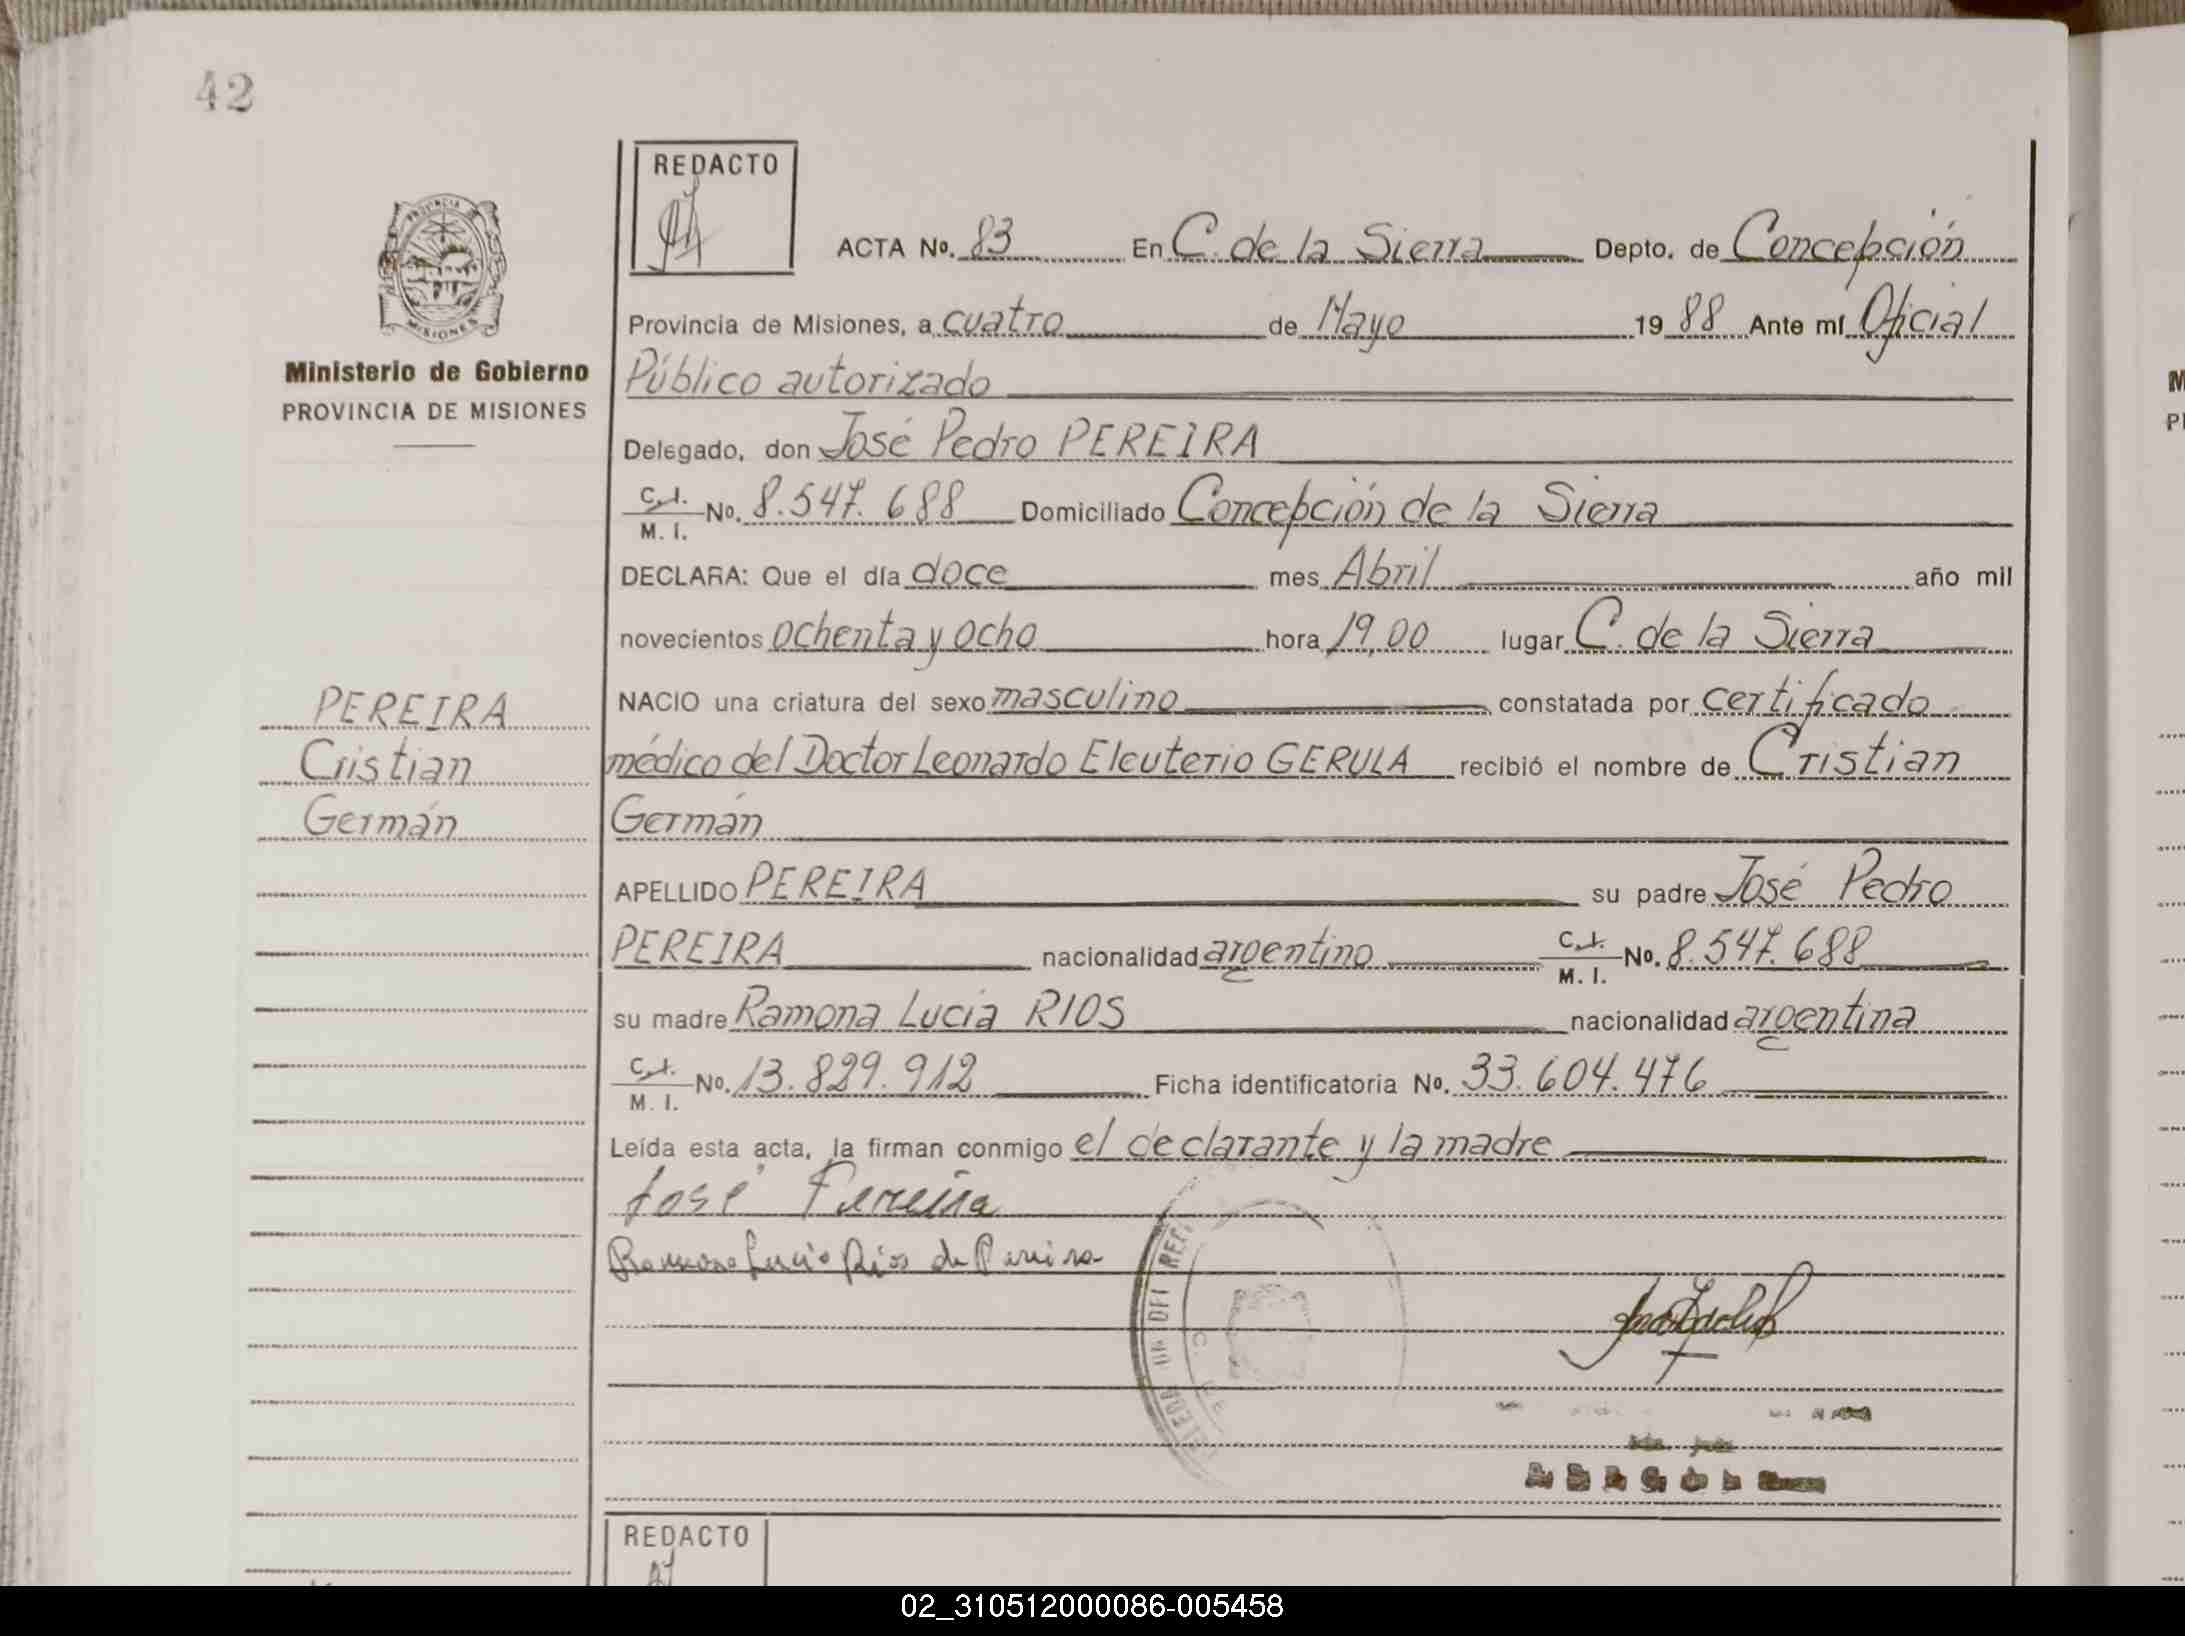 42
REDACTO
ACTA No. 83 En C. de la Sierra Depto. de Concepción
Provincia de Misiones, a cuatro de Mayo 1988 Ante mí Oficial
Público autorizado
Delegado, don José Pedro PEREIRA
C.I. M. I. No. 8.547.688 Domiciliado Concepción de la Sierra
DECLARA: Que el día doce mes Abril año mil
novecientos ochenta y ocho hora 19,00 lugar C. de la Sierra
NACIO una criatura del sexo masculino constatada por certificado
médico del Doctor Leonardo Eleuterio GERULA recibió el nombre de Cristian
Germán
APELLIDO PEREIRA su padre José Pedro
PEREIRA nacionalidad argentino C.I. M. I. No. 8.547.688
su madre Ramona Lucia RIOS nacionalidad argentina
C.I. M. I. No. 13.829.912 Ficha identificatoria No. 33.604.476
Leída esta acta, la firman conmigo el declarante y la madre
José Pereira
Ramona Lucia Rios de Pereira
PROVINCIA DE
MISIONES
Ministerio de Gobierno
PROVINCIA DE MISIONES
PEREIRA
Cristian
Germán
REDACTO
02_310512000086-005458